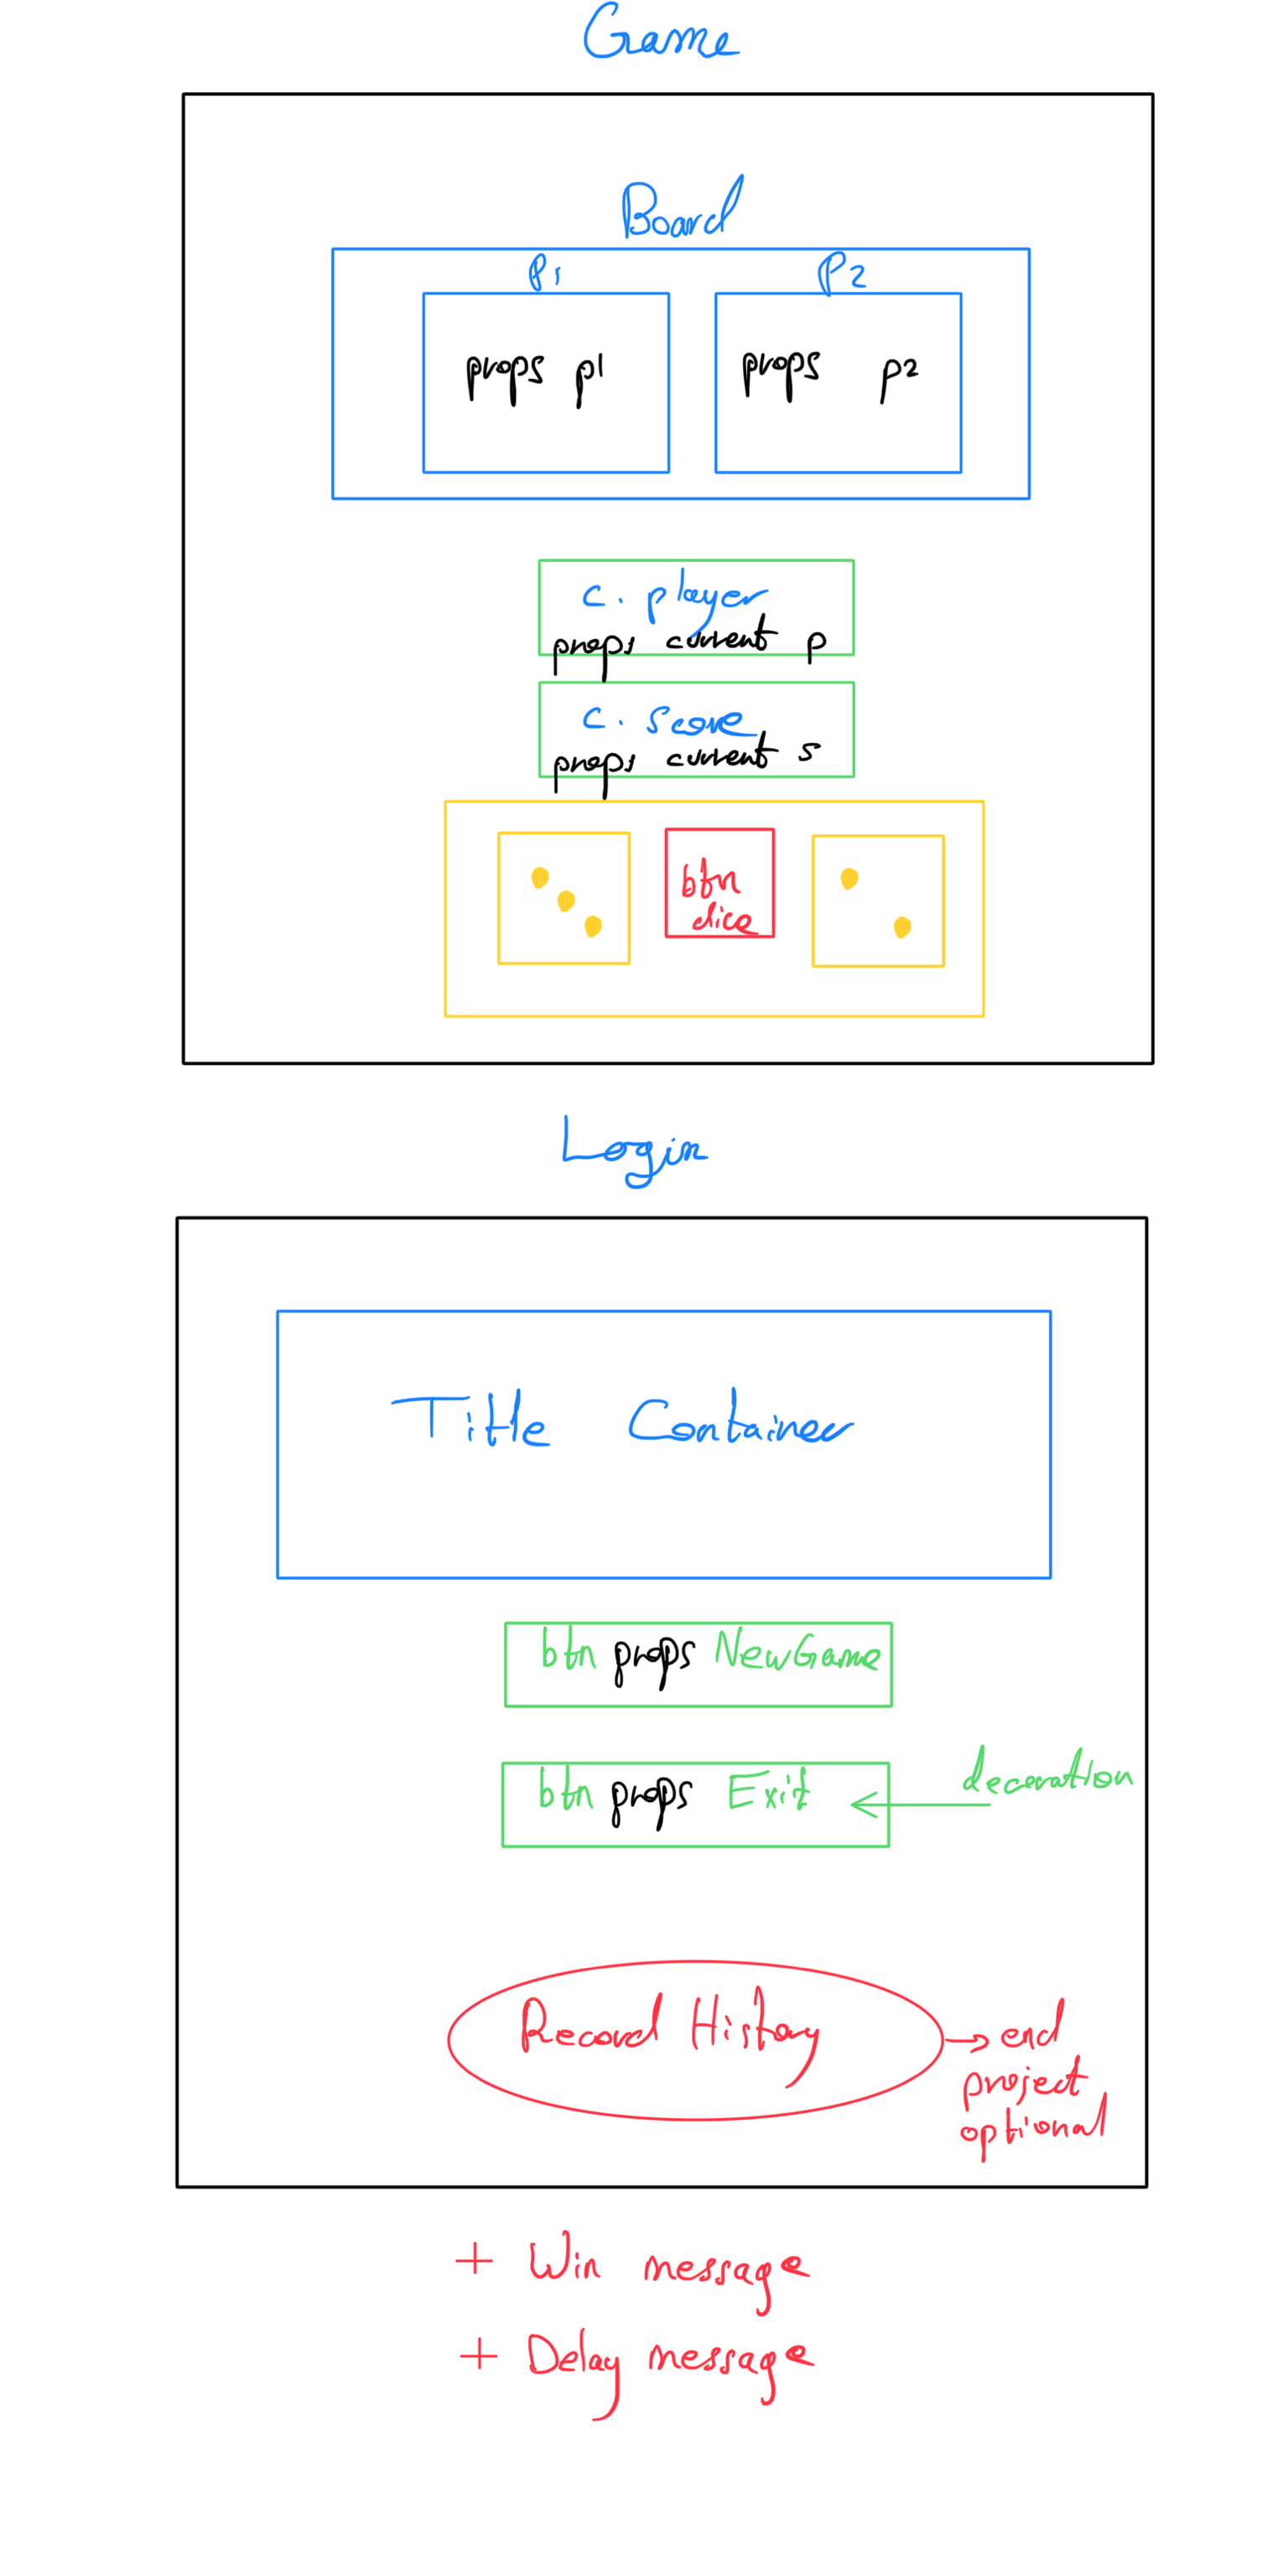 Game
Board
P1 P2
props p1 props p2
c. player
props current p
c. score
props current s
btn
dice
Login
Title Container
btn props NewGame
btn props Exit
decoration
Record History
end
project
optional
+ Win message
+ Delay message